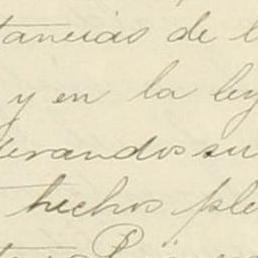 tancias de l
y en la ley
erandos su
hechos ple